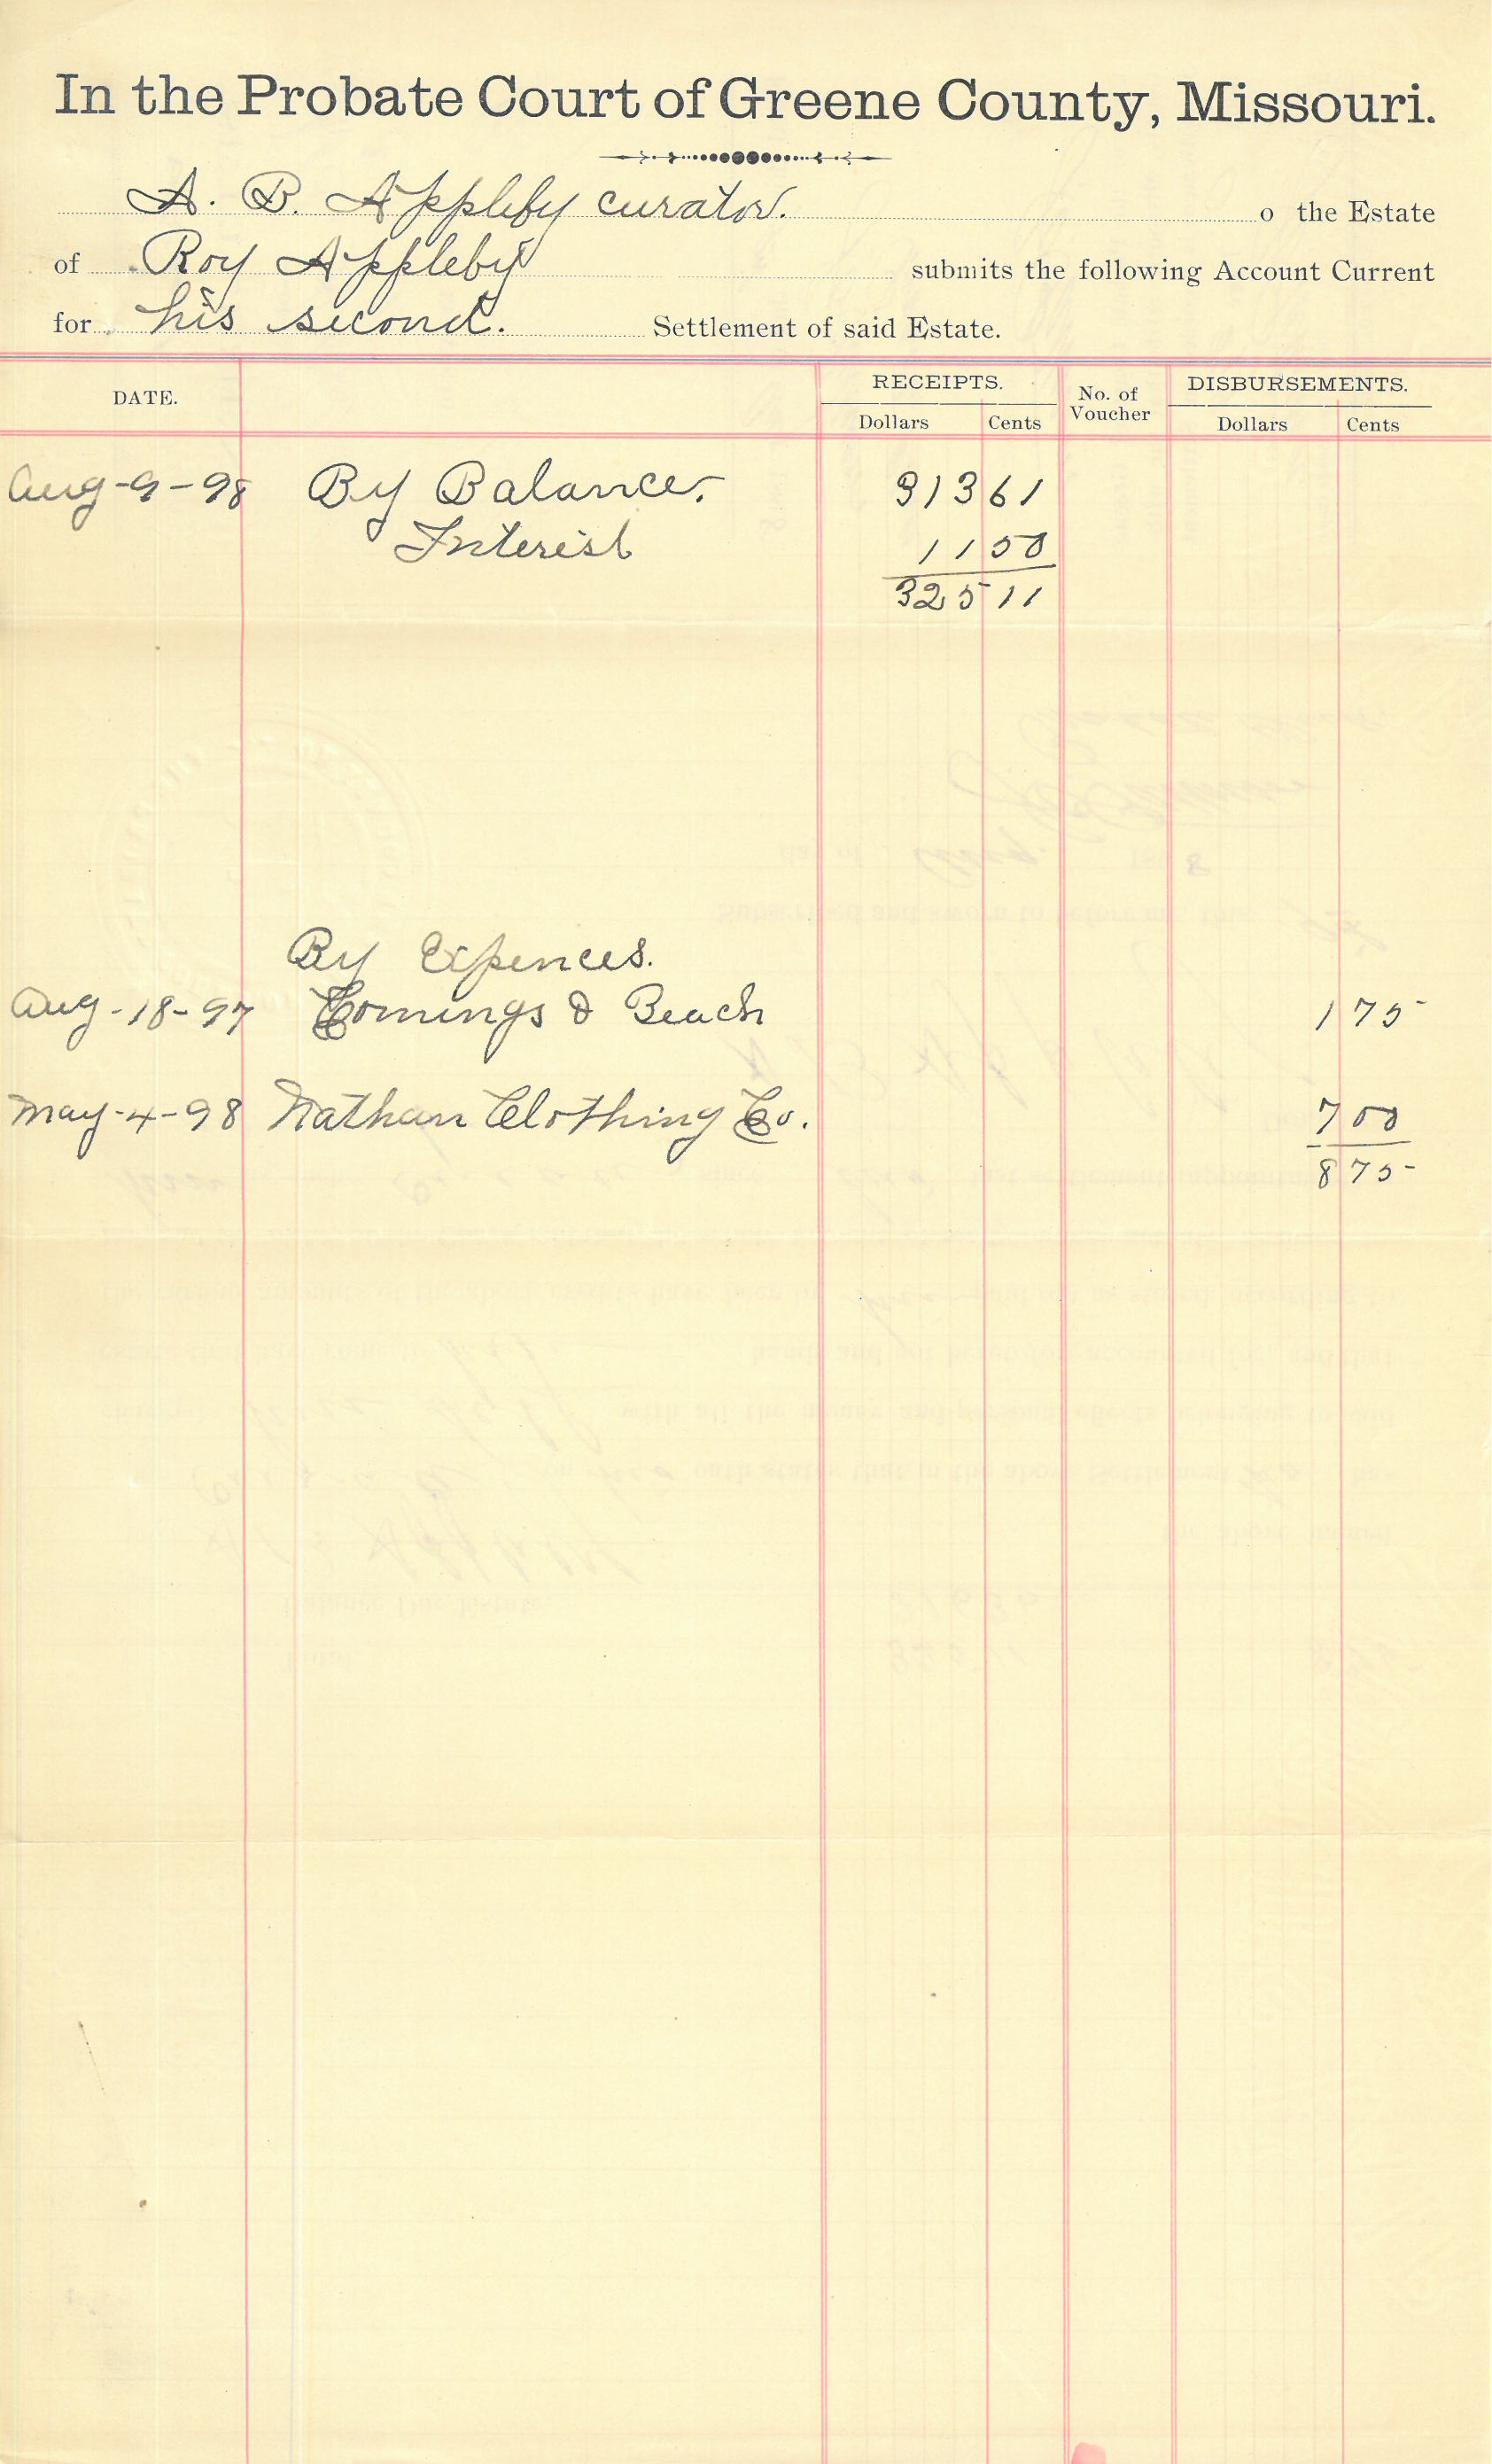 In the Probate Court of Greene County, Missouri.
A. B. Appleby curator. o the Estate
of Roy Appleby submits the following Account Current
for his second. Settlement of said Estate.
DATE. RECEIPTS. No. of Voucher DISBURSEMENTS.
Dollars Cents Dollars Cents
Aug-9-98 By Balance. 313 61
Interest 11 50
325 11
By Expences.
Aug-18-97 Comings & Beach 1 75
May-4-98 Nathan Clothing Co. 7 00
8 75